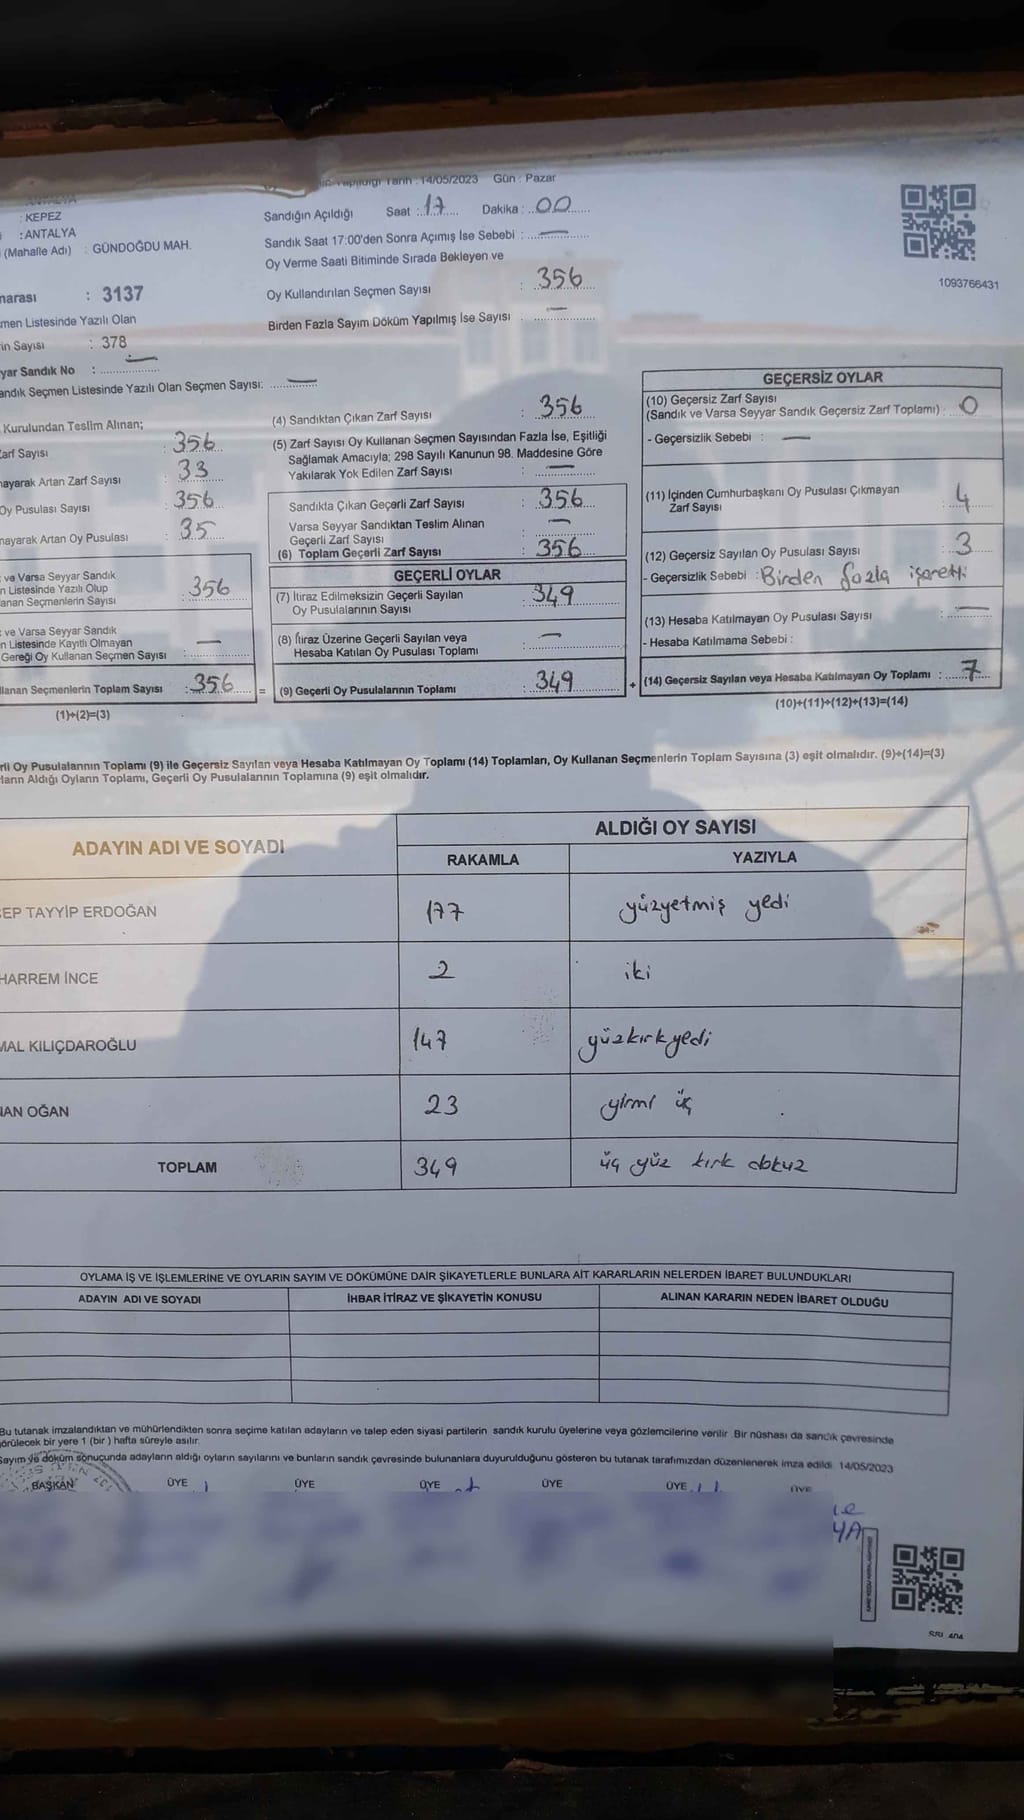 Tarih : 14/05/2023 Gün : Pazar
ANTALYA
: KEPEZ
: ANTALYA
(Mahalle Adı) : GÜNDOĞDU MAH.
Sandığın Açıldığı Saat : 17 Dakika : 00
Sandık Saat 17:00'den Sonra Açımış İse Sebebi : —
Oy Verme Saati Bitiminde Sırada Bekleyen ve
Oy Kullandırılan Seçmen Sayısı : 356
Birden Fazla Sayım Döküm Yapılmış İse Sayısı : —
1093766431
: 3137
Listesinde Yazılı Olan
Sayısı : 378
Sandık No : —
Sandık Seçmen Listesinde Yazılı Olan Seçmen Sayısı: —
Kurulundan Teslim Alınan;
Sayısı : 356
Artan Zarf Sayısı : 33
Oy Pusulası Sayısı : 356
Artan Oy Pusulası : 35
ve Varsa Seyyar Sandık
Listesinde Yazılı Olup
Seçmenlerin Sayısı 356
ve Varsa Seyyar Sandık
Listesinde Kayıtlı Olmayan
Gereği Oy Kullanan Seçmen Sayısı : —
Seçmenlerin Toplam Sayısı : 356 =
(1)+(2)=(3)
(4) Sandıktan Çıkan Zarf Sayısı : 356
(5) Zarf Sayısı Oy Kullanan Seçmen Sayısından Fazla İse, Eşitliği
Sağlamak Amacıyla; 298 Sayılı Kanunun 98. Maddesine Göre
Yakılarak Yok Edilen Zarf Sayısı : —
Sandıkta Çıkan Geçerli Zarf Sayısı : 356
Varsa Seyyar Sandıktan Teslim Alınan
Geçerli Zarf Sayısı : —
(6) Toplam Geçerli Zarf Sayısı : 356
GEÇERLİ OYLAR
(7) İtiraz Edilmeksizin Geçerli Sayılan
Oy Pusulalarının Sayısı : 349
(8) İtiraz Üzerine Geçerli Sayılan veya
Hesaba Katılan Oy Pusulası Toplamı : —
(9) Geçerli Oy Pusulalarının Toplamı : 349 +
GEÇERSİZ OYLAR
(10) Geçersiz Zarf Sayısı
(Sandık ve Varsa Seyyar Sandık Geçersiz Zarf Toplamı) : 0
- Geçersizlik Sebebi : —
(11) İçinden Cumhurbaşkanı Oy Pusulası Çıkmayan
Zarf Sayısı : 4
(12) Geçersiz Sayılan Oy Pusulası Sayısı : 3
- Geçersizlik Sebebi : Birden fazla işaretli
(13) Hesaba Katılmayan Oy Pusulası Sayısı : —
- Hesaba Katılmama Sebebi :
(14) Geçersiz Sayılan veya Hesaba Katılmayan Oy Toplamı : 7
(10)+(11)+(12)+(13)=(14)
Oy Pusulalarının Toplamı (9) ile Geçersiz Sayılan veya Hesaba Katılmayan Oy Toplamı (14) Toplamları, Oy Kullanan Seçmenlerin Toplam Sayısına (3) eşit olmalıdır. (9)+(14)=(3)
Aldığı Oyların Toplamı, Geçerli Oy Pusulalarının Toplamına (9) eşit olmalıdır.
ADAYIN ADI VE SOYADI
ALDIĞI OY SAYISI
RAKAMLA YAZIYLA
TAYYİP ERDOĞAN 177 yüzyetmiş yedi
İNCE 2 iki
KILIÇDAROĞLU 147 yüzkırkyedi
OĞAN 23 yirmi üç
TOPLAM 349 üç yüz kırk dokuz
OYLAMA İŞ VE İŞLEMLERİNE VE OYLARIN SAYIM VE DÖKÜMÜNE DAİR ŞİKAYETLERLE BUNLARA AİT KARARLARIN NELERDEN İBARET BULUNDUKLARI
ADAYIN ADI VE SOYADI İHBAR İTİRAZ VE ŞİKAYETİN KONUSU ALINAN KARARIN NEDEN İBARET OLDUĞU
Bu tutanak imzalandıktan ve mühürlendikten sonra seçime katılan adayların ve talep eden siyasi partilerin sandık kurulu üyelerine veya gözlemcilerine verilir. Bir nüshası da sandık çevresinde
görülecek bir yere 1 (bir) hafta süreyle asılır.
Sayım ve döküm sonucunda adayların aldığı oyların sayılarını ve bunların sandık çevresinde bulunanlara duyurulduğunu gösteren bu tutanak tarafımızdan düzenlenerek imza edildi. 14/05/2023
BAŞKAN ÜYE ÜYE ÜYE ÜYE ÜYE ÜYE